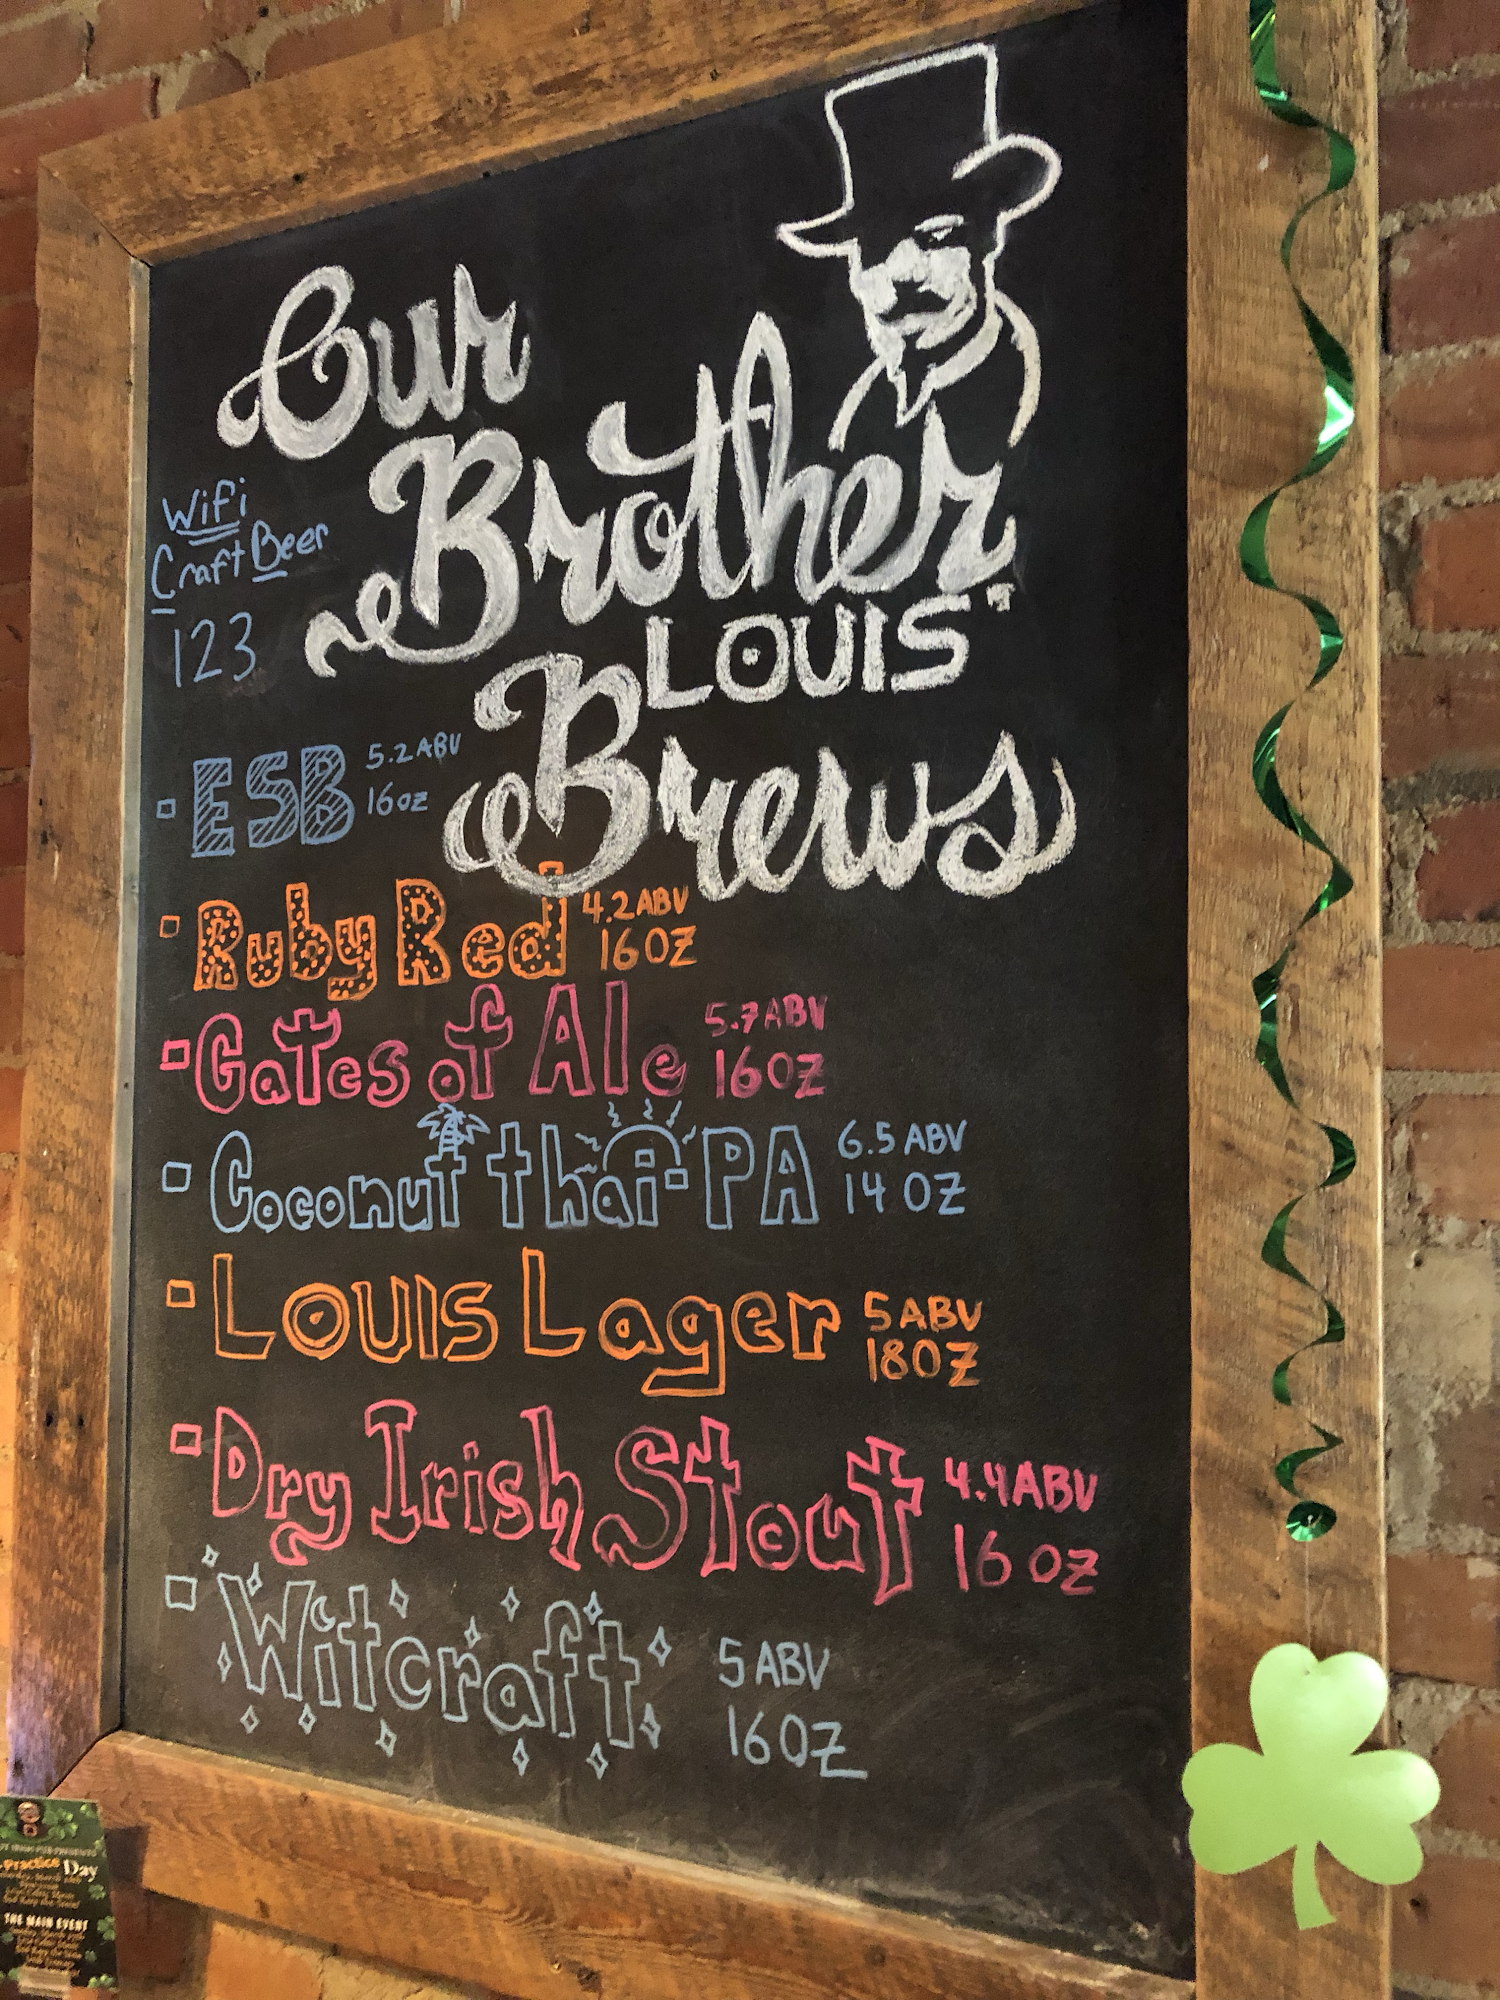 Our
Brother
LOUIS'
Brews
WiFi
Craft Beer
123
ESB 5.2 ABV
16oz
Ruby Red 4.2 ABV
16 OZ
Gates of Ale 5.7 ABV
16OZ
Coconut thai-PA 6.5 ABV
14 OZ
Louis Lager 5 ABV
18OZ
Dry Irish Stout 4.4 ABV
16 OZ
Witcraft 5 ABV
16 OZ
Practice Day
THE MAIN EVENT